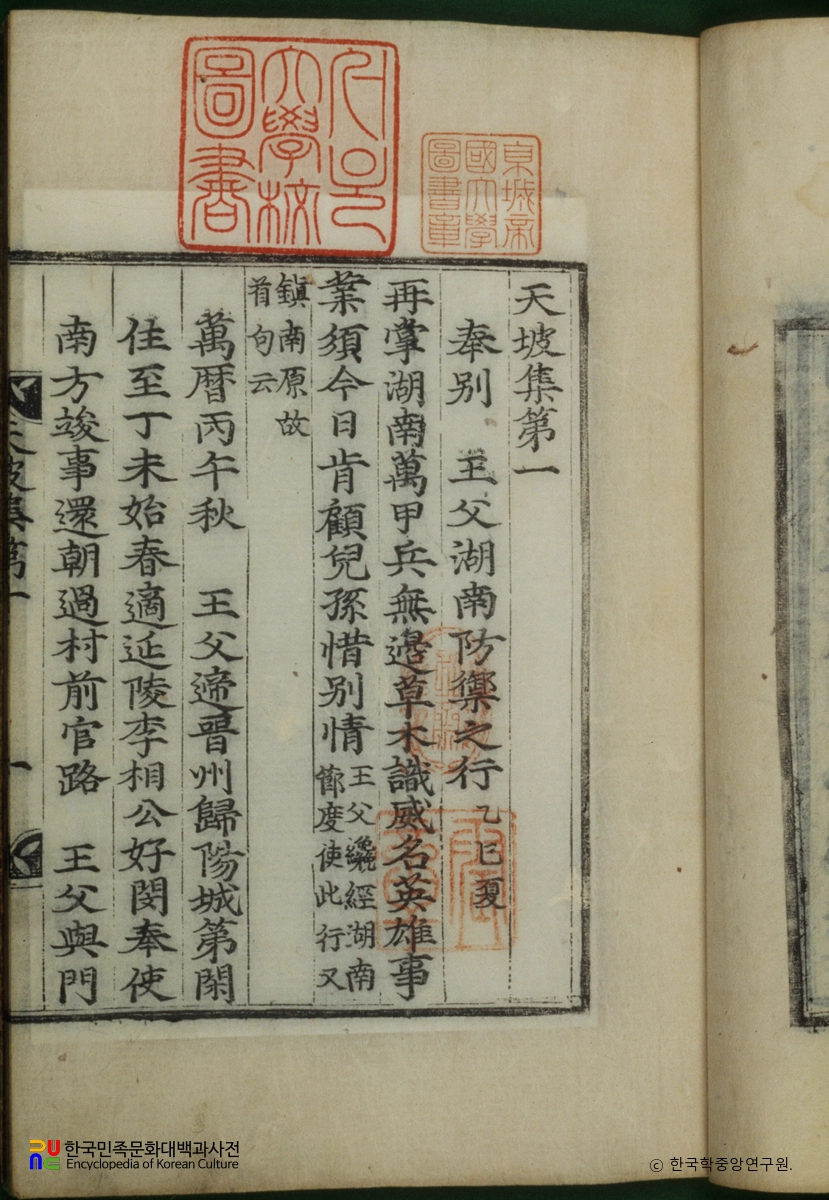 서울大學校圖書
京城帝國大學圖書章
天坡集第一
奉别 王父湖南防禦之行 乙巳夏
再掌湖南萬甲兵無邉草木識威名英雄事
業須今日肯顧兒孫惜别情 王父纔經湖南
節度使此行又
鎮南原故
首句云
萬曆丙午秋 王父遞晋州歸陽城第閑
住至丁未始春適延陵李相公好閔奉使
南方竣事還朝過村前官路 王父與門
天坡集第一 一
한국민족문화대백과사전
Encyclopedia of Korean Culture
© 한국학중앙연구원.